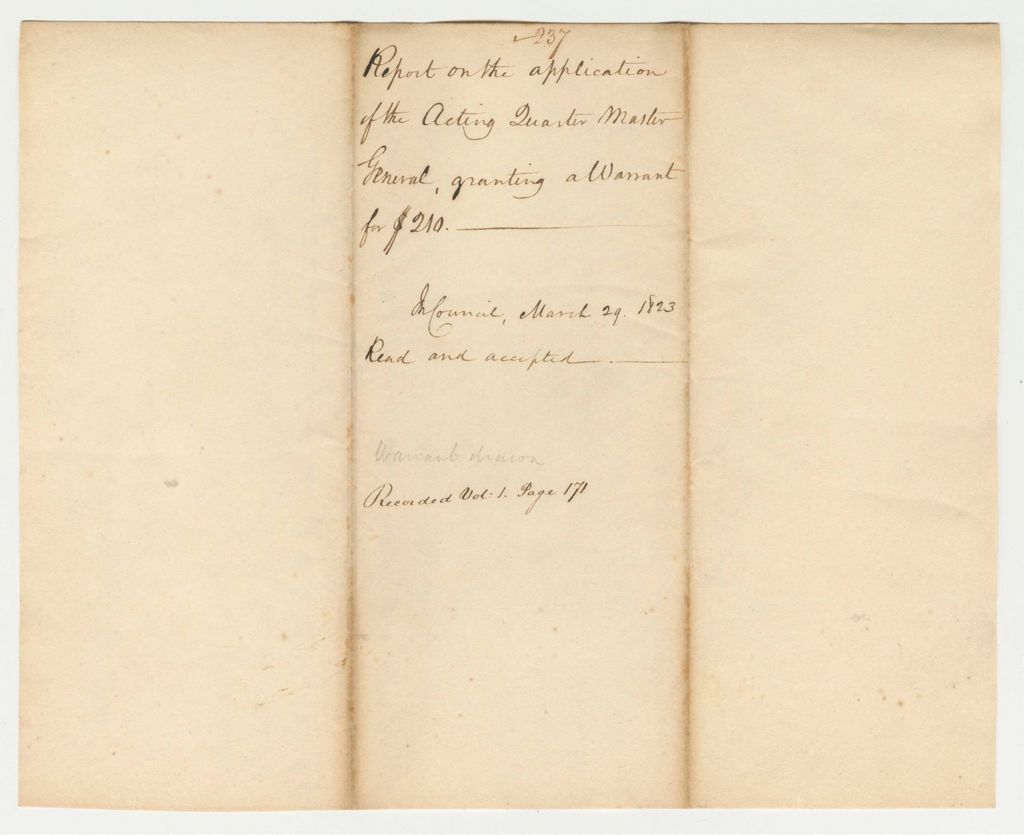 237
Report on the application
of the Acting Quarter Master
General, granting a Warrant
for $210.
In Council, March 29. 1823
Read and accepted.
Warrant drawn
Recorded Vol: 1. Page 171